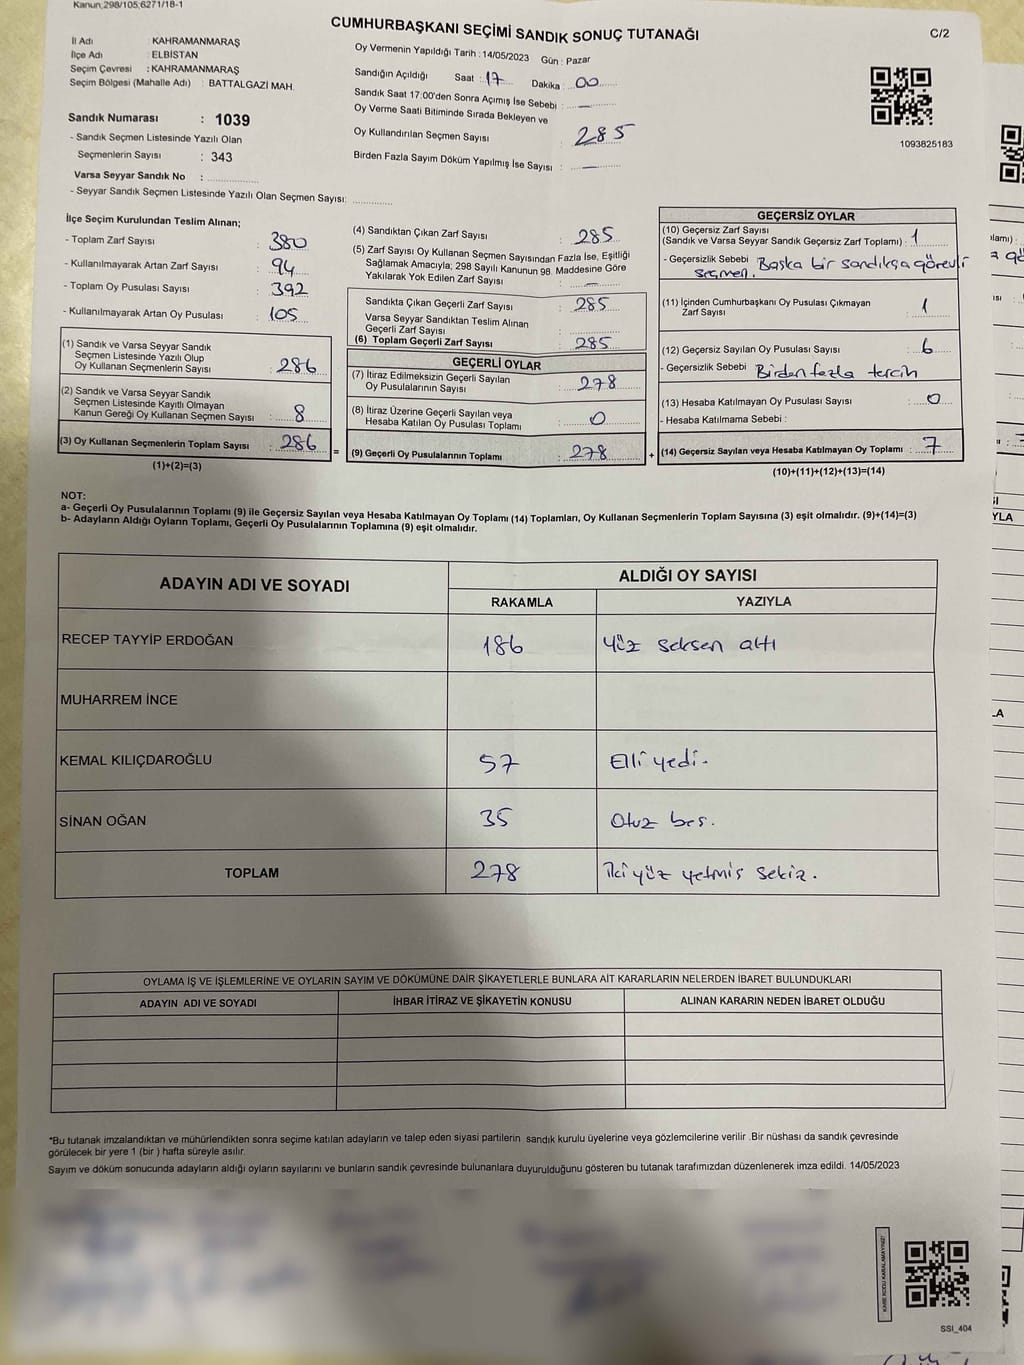 Kanun,298/105,6271/18-1
CUMHURBAŞKANI SEÇİMİ SANDIK SONUÇ TUTANAĞI
C/2
İl Adı : KAHRAMANMARAŞ
İlçe Adı : ELBİSTAN
Seçim Çevresi : KAHRAMANMARAŞ
Seçim Bölgesi (Mahalle Adı) : BATTALGAZİ MAH.
Sandık Numarası : 1039
- Sandık Seçmen Listesinde Yazılı Olan
Seçmenlerin Sayısı : 343
Varsa Seyyar Sandık No :
- Seyyar Sandık Seçmen Listesinde Yazılı Olan Seçmen Sayısı:
Oy Vermenin Yapıldığı Tarih : 14/05/2023 Gün : Pazar
Sandığın Açıldığı Saat : 17 Dakika : 00
Sandık Saat 17:00'den Sonra Açımış İse Sebebi : —
Oy Verme Saati Bitiminde Sırada Bekleyen ve
Oy Kullandırılan Seçmen Sayısı : 285
Birden Fazla Sayım Döküm Yapılmış İse Sayısı : —
1093825183
İlçe Seçim Kurulundan Teslim Alınan;
- Toplam Zarf Sayısı : 380
- Kullanılmayarak Artan Zarf Sayısı : 94
- Toplam Oy Pusulası Sayısı : 392
- Kullanılmayarak Artan Oy Pusulası : 105
(1) Sandık ve Varsa Seyyar Sandık
Seçmen Listesinde Yazılı Olup
Oy Kullanan Seçmenlerin Sayısı : 286
(2) Sandık ve Varsa Seyyar Sandık
Seçmen Listesinde Kayıtlı Olmayan
Kanun Gereği Oy Kullanan Seçmen Sayısı : 8
(3) Oy Kullanan Seçmenlerin Toplam Sayısı : 286
(1)+(2)=(3)
(4) Sandıktan Çıkan Zarf Sayısı : 285
(5) Zarf Sayısı Oy Kullanan Seçmen Sayısından Fazla İse, Eşitliği
Sağlamak Amacıyla; 298 Sayılı Kanunun 98. Maddesine Göre
Yakılarak Yok Edilen Zarf Sayısı : —
Sandıkta Çıkan Geçerli Zarf Sayısı : 285
Varsa Seyyar Sandıktan Teslim Alınan
Geçerli Zarf Sayısı :
(6) Toplam Geçerli Zarf Sayısı : 285
GEÇERLİ OYLAR
(7) İtiraz Edilmeksizin Geçerli Sayılan
Oy Pusulalarının Sayısı : 278
(8) İtiraz Üzerine Geçerli Sayılan veya
Hesaba Katılan Oy Pusulası Toplamı : 0
= (9) Geçerli Oy Pusulalarının Toplamı : 278 +
GEÇERSİZ OYLAR
(10) Geçersiz Zarf Sayısı
(Sandık ve Varsa Seyyar Sandık Geçersiz Zarf Toplamı) : 1
- Geçersizlik Sebebi : Başka bir sandıkça görevli
seçmen.
(11) İçinden Cumhurbaşkanı Oy Pusulası Çıkmayan
Zarf Sayısı : 1
(12) Geçersiz Sayılan Oy Pusulası Sayısı : 6
- Geçersizlik Sebebi : Birden fazla tercih
(13) Hesaba Katılmayan Oy Pusulası Sayısı : 0
- Hesaba Katılmama Sebebi :
(14) Geçersiz Sayılan veya Hesaba Katılmayan Oy Toplamı : 7
(10)+(11)+(12)+(13)=(14)
NOT:
a- Geçerli Oy Pusulalarının Toplamı (9) ile Geçersiz Sayılan veya Hesaba Katılmayan Oy Toplamı (14) Toplamları, Oy Kullanan Seçmenlerin Toplam Sayısına (3) eşit olmalıdır. (9)+(14)=(3)
b- Adayların Aldığı Oyların Toplamı, Geçerli Oy Pusulalarının Toplamına (9) eşit olmalıdır.
ADAYIN ADI VE SOYADI
ALDIĞI OY SAYISI
RAKAMLA YAZIYLA
RECEP TAYYİP ERDOĞAN 186 Yüz seksen altı
MUHARREM İNCE
KEMAL KILIÇDAROĞLU 57 Elli yedi.
SİNAN OĞAN 35 Otuz beş.
TOPLAM 278 İki yüz yetmiş sekiz.
OYLAMA İŞ VE İŞLEMLERİNE VE OYLARIN SAYIM VE DÖKÜMÜNE DAİR ŞİKAYETLERLE BUNLARA AİT KARARLARIN NELERDEN İBARET BULUNDUKLARI
ADAYIN ADI VE SOYADI İHBAR İTİRAZ VE ŞİKAYETİN KONUSU ALINAN KARARIN NEDEN İBARET OLDUĞU
*Bu tutanak imzalandıktan ve mühürlendikten sonra seçime katılan adayların ve talep eden siyasi partilerin sandık kurulu üyelerine veya gözlemcilerine verilir .Bir nüshası da sandık çevresinde
görülecek bir yere 1 (bir ) hafta süreyle asılır.
Sayım ve döküm sonucunda adayların aldığı oyların sayılarını ve bunların sandık çevresinde bulunanlara duyurulduğunu gösteren bu tutanak tarafımızdan düzenlenerek imza edildi. 14/05/2023
KARE KODU KARALAMAYINIZ!
SSI_404